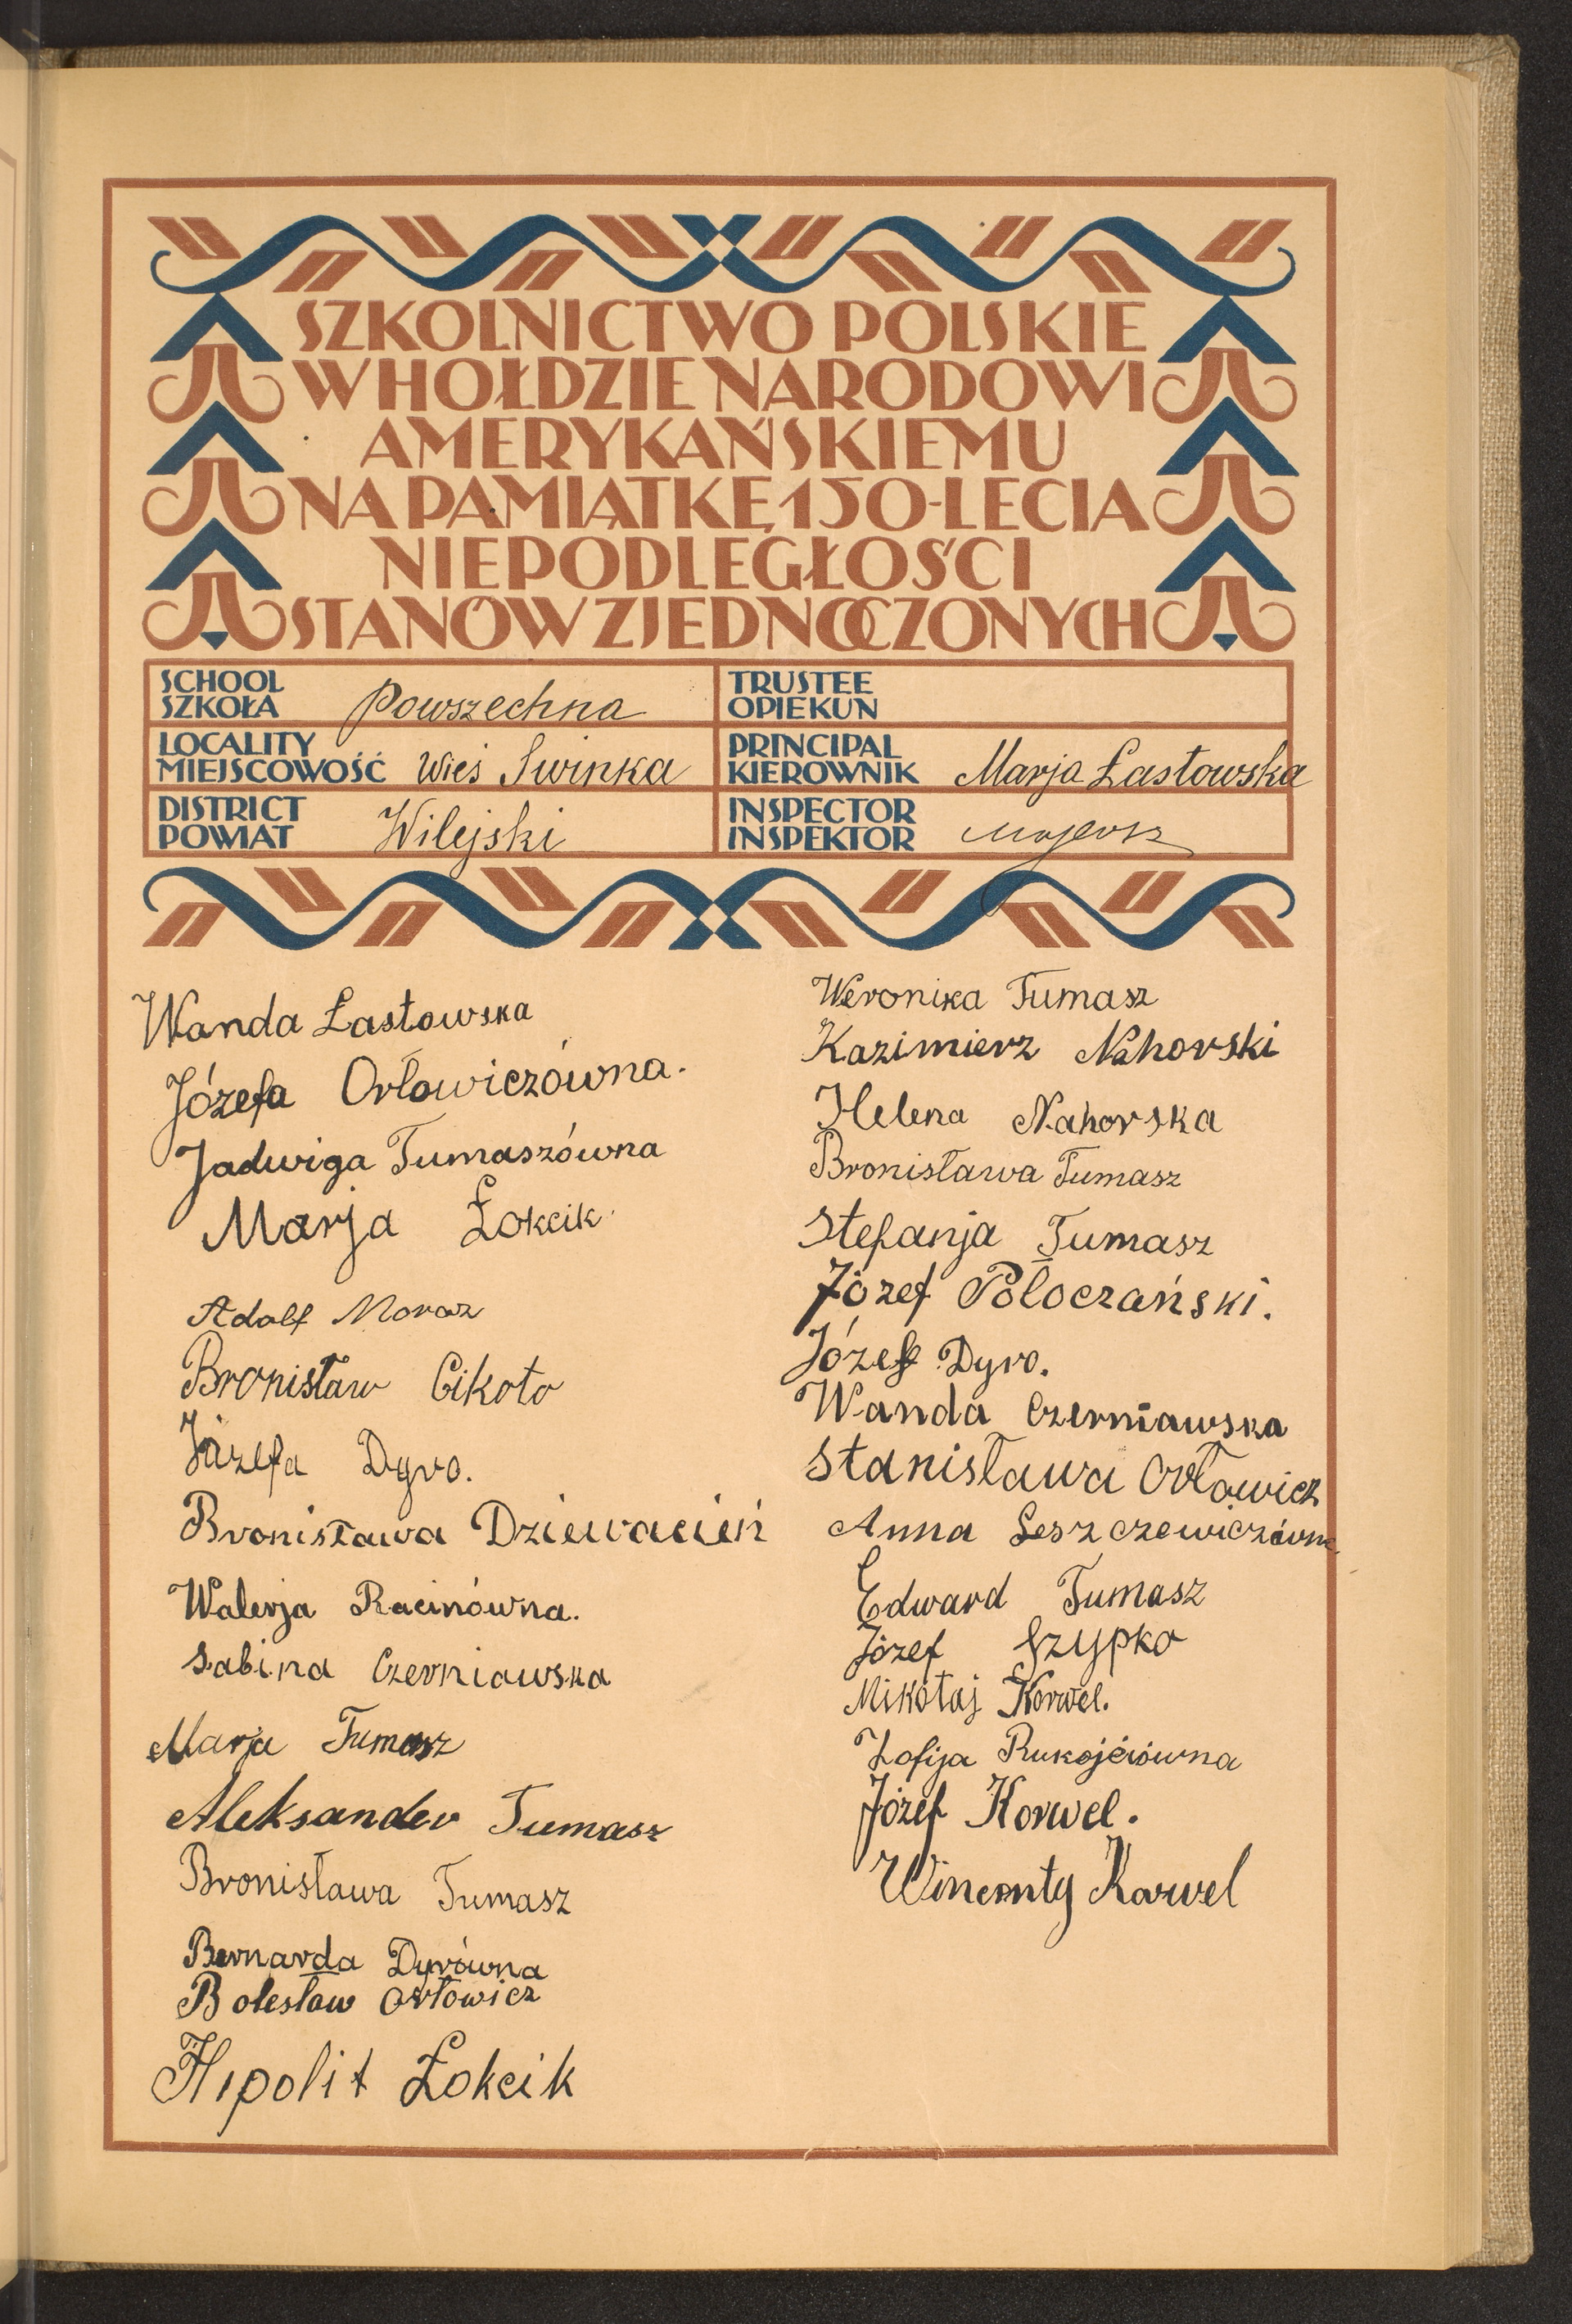 SZKOLNICTWO POLSKIE
W HOŁDZIE NARODOWI
AMERYKAŃSKIEMU
NA PAMIĄTKĘ 150-LECIA
NIEPODLEGŁOŚCI
STANÓW ZJEDNOCZONYCH
SCHOOL
SZKOŁA Powszechna
TRUSTEE
OPIEKUN
LOCALITY
MIEJSCOWOŚĆ Wieś Świnka
PRINCIPAL
KIEROWNIK Marja Łastowska
DISTRICT
POWIAT Wilejski
INSPECTOR
INSPEKTOR
Wanda Łastowska
Józefa Orłowiczówna.
Jadwiga Tumaszówna
Marja Łokcik
Adolf Moraz
Bronisław Cikoto
Józefa Dyro.
Bronisława Dziewacień
Walerja Racinówna.
Sabina Czerniawska
Marja Tumasz
Aleksander Tumasz
Bronisława Tumasz
Bernarda Dyrówna
Bolesław Orłowicz
Hipolit Łokcik
Weronika Tumasz
Kazimierz Nahorski
Helena Nahorska
Bronisława Tumasz
Stefanja Tumasz
Józef Połoczański.
Józef Dyro.
Wanda Czerniawska
Stanisława Orłowicz
Anna Leszczewiczówna.
Edward Tumasz
Józef Szypko
Mikołaj Korwel.
Zofija Rukojściówna
Józef Korwel.
Wincenty Karwel